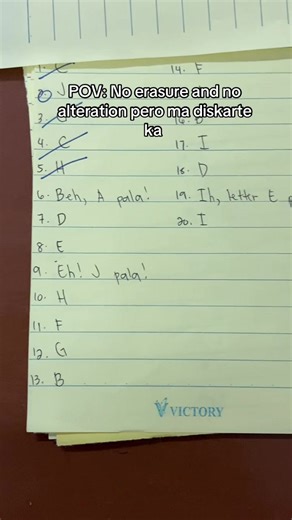 POV: No erasure and no
alteration pero ma diskarte
ka
2. J
4. C
5. H
6. Beh, A pala!
7. D
8. E
9. Eh! J pala!
10. H
11. F
12. G
13. B
14. F
17. I
18. D
19. Ih, letter E
20. I
VICTORY